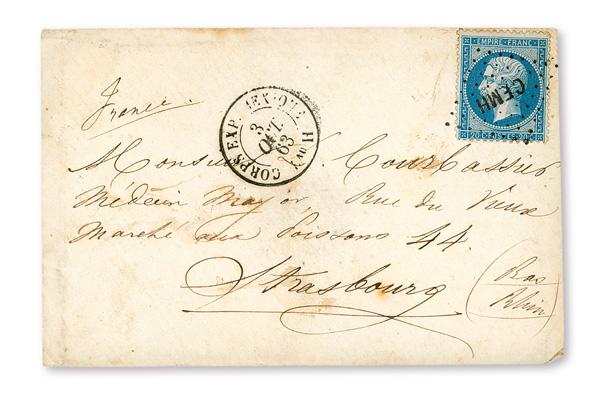 EMPIRE FRANC
CEMH
20 C POSTES 20 C
France.
CORPS EXP. MEX-QUE Bau H
3
OCT.
63
Monsieur Courbassier
Médecin Major, Rue du Vieux
Marché aux Poissons 44.
Strasbourg
(Bas
Rhin)